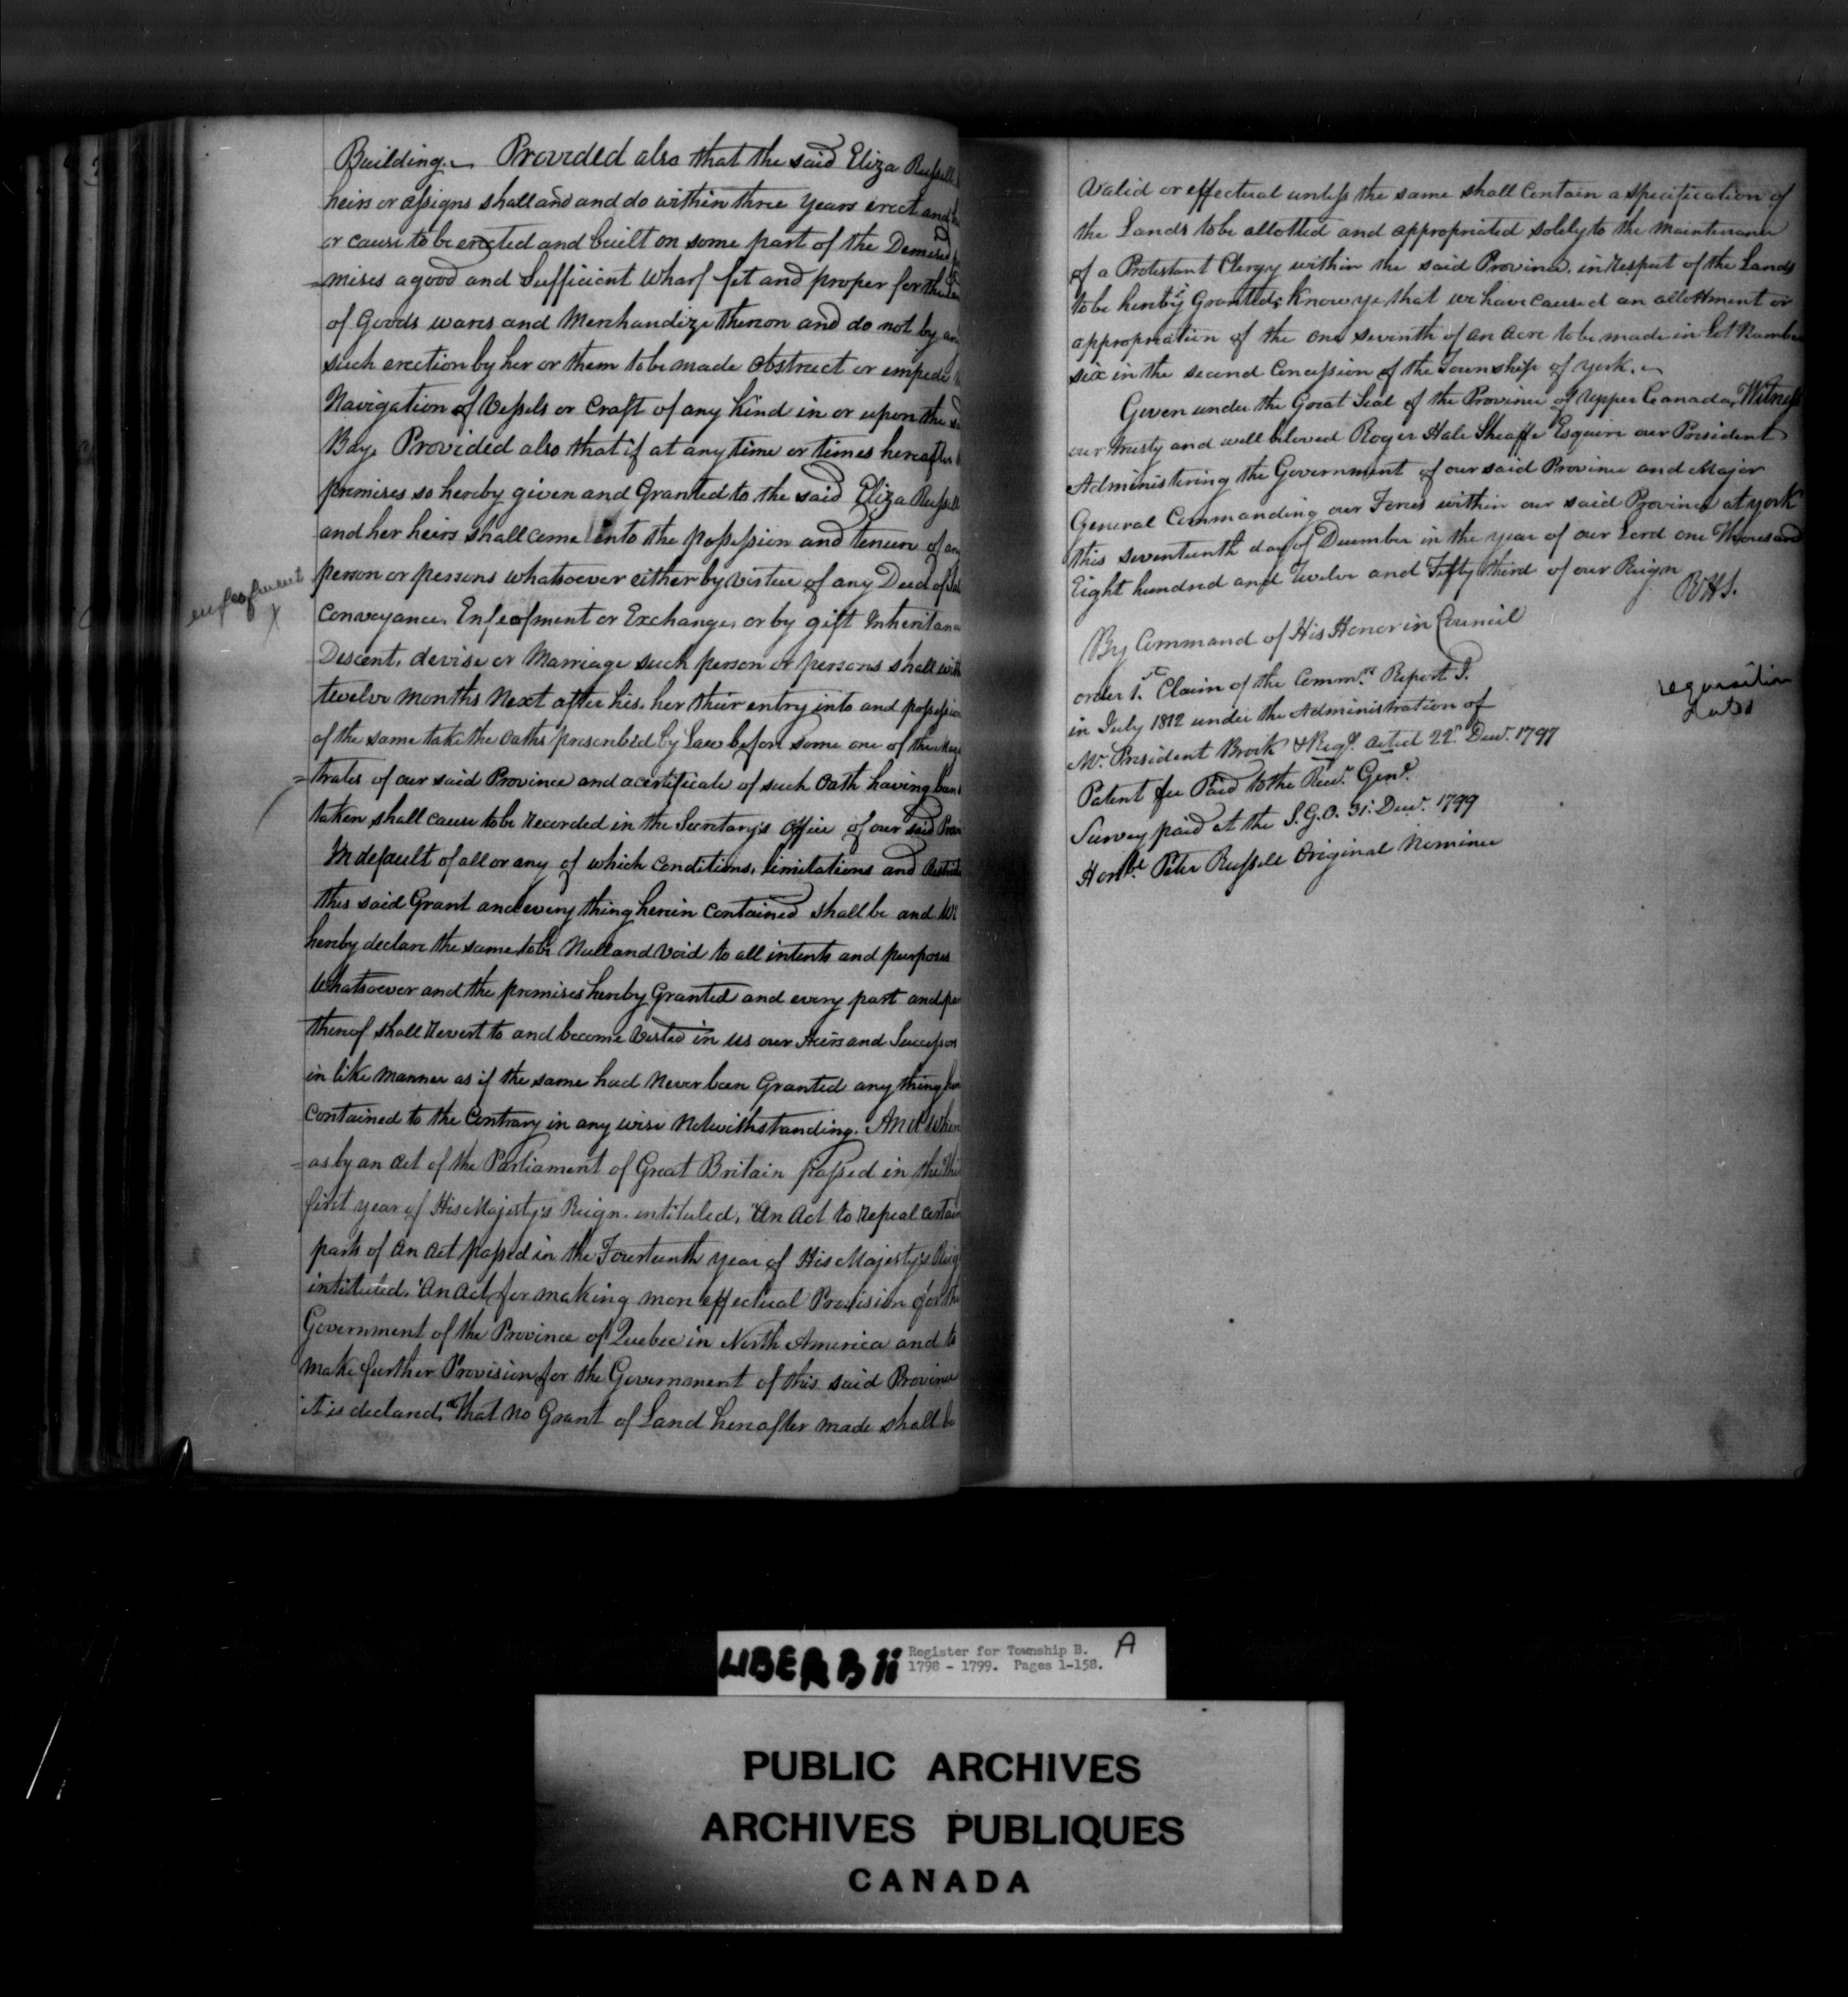 Building. Provided also that the said Eliza Russell
heirs or assigns shall and and do within three years erect and
or cause to be erected and built on some part of the Demised
=mises a good and Sufficient Wharf fit and proper for the
of Goods wares and Merchandize thereon and do not by any
such erection by her or them to be made obstruct or empede
Navigation of Vessels or Craft of any kind in or upon the
Bay, Provided also that if at any time or times hereafter
premises so hereby given and Granted to the said Eliza Russell
and her heirs shall come into the possession and tenure of any
enfeofment
x
person or persons whatsoever either by virtue of any Deed of
Conveyance, Enfeofment or Exchange, or by gift Inheritance
Descent, devise or Marriage such person or persons shall with
twelve months Next after his, her their entry into and possession
of the same take the oaths prescribed by Law before some one of the
=trates of our said Province and a certificate of such Oath having been
taken shall cause to be recorded in the Secretary's Office of our said
In default of all or any of which conditions, limitations and
this said Grant and every thing herein contained shall be and We
hereby declare the same to be Null and Void to all intents and purposes
Whatsoever and the premises hereby Granted and every part and
thereof shall Revert to and become Vested in us our Heirs and Successors
in like manner as if the same had Never been Granted any thing
contained to the Contrary in any wise Notwithstanding. And When
=as by an act of the Parliament of Great Britain passed in the
first year of His Majesty's Reign intituled, "An Act to repeal certain
parts of an act passed in the Fourteenth year of His Majesty's
intituled, "An Act for making more effectual Provision for the
Government of the Province of Quebec in North America and to
make further Provision for the Government of this said Province
it is declared, "That no Grant of Land hereafter made shall be
valid or effectual unless the same shall Contain a specification of
the Lands to be allotted and appropriated solely to the maintenance
of a Protestant Clergy within the said Province, in respect of the Lands
to be hereby Granted; Know ye that we have caused an allottment or
appropriation of the one seventh of an acre to be made in Lot Number
six in the second Concession of the Township of york.
Given under the Great Seal of the Province of Upper Canada, Witness
our trusty and well beloved Roger Hale Sheaffe Esquire our President
Administering the Government of our said Province and Major
General Commanding our Forces within our said Province at york
this seventeenth day of December in the year of our Lord one Thousand
Eight hundred and Twelve and Fifty third of our Reign
R H S.
By Command of His Honor in Council
order 1.st Claim of the Commrs. Report
in July 1812 under the Administration of
requisition
Mr. President Brock & Reqn. dated 22d Decr. 1797
Patent fee Paid to the Recr. Genl.
Survey paid at the S.G.O. 31. Decr. 1799
Honble Peter Russell Original Nominee
LIBER B ii
Register for Township B.
1798 - 1799. Pages 1-158.
A
PUBLIC ARCHIVES
ARCHIVES PUBLIQUES
CANADA